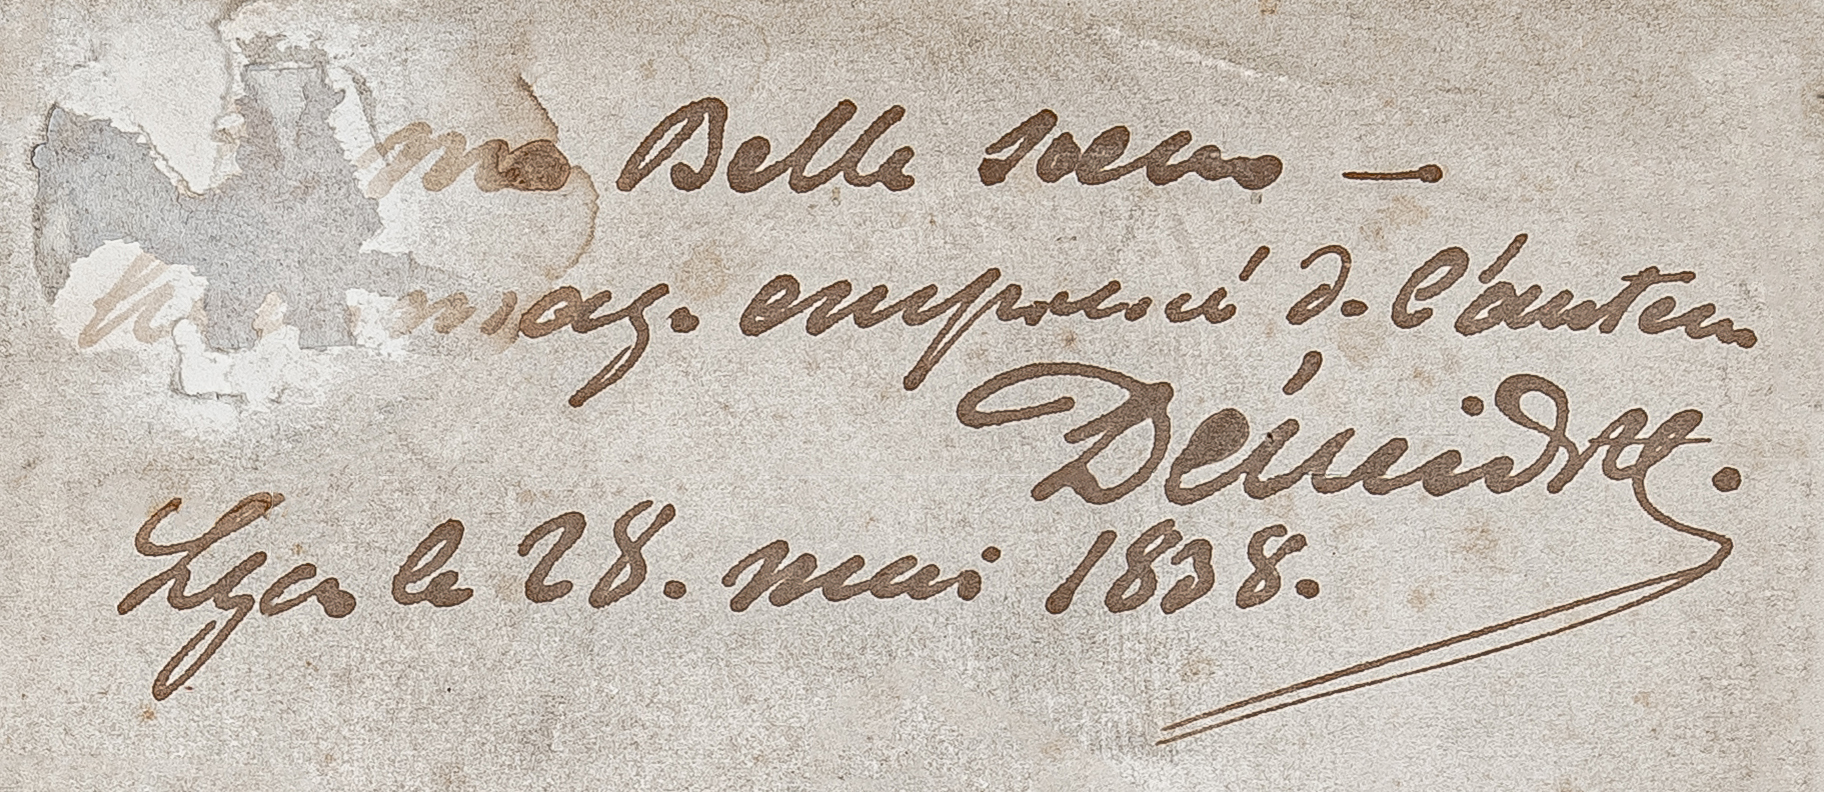 ma Belle soeur —
hommag. empressé de l'auteur
Lyon le 28. mai 1838.